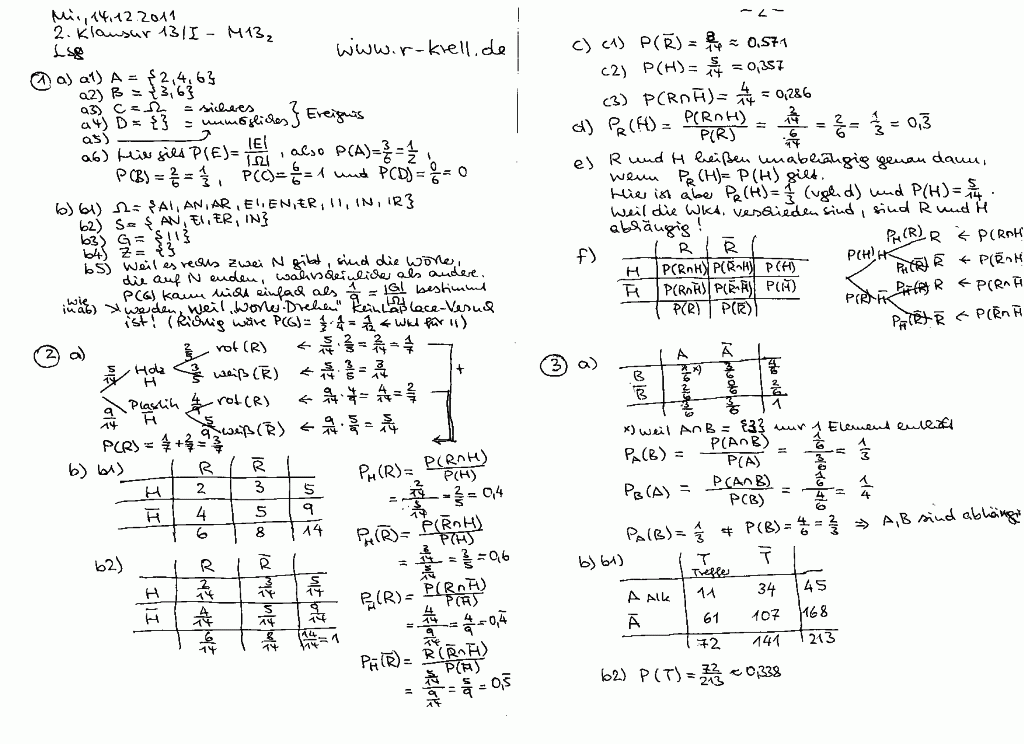 Mi., 14.12.2011
2. Klausur 13/I - M13₂
Lsg
www.r-krell.de
① a) a1) A = {2,4,6}
a2) B = {3,6}
a3) C = Ω = sicheres
a4) D = {} = unmögliches } Ereignis
a5)
a6) Hier gilt P(E) = |E|/|Ω|, also P(A) = 3/6 = 1/2,
P(B) = 2/6 = 1/3, P(C) = 6/6 = 1 und P(D) = 0/6 = 0
b) b1) Ω = {AI, AN, AR, EI, EN, ER, II, IN, IR}
b2) S = {AN, EI, ER, IN}
b3) G = {II}
b4) Z = {}
b5) Weil es rechts zwei N gibt, sind die Wörter,
die auf N enden, wahrscheinlicher als andere.
P(G) kann nicht einfach als 1/9 = |G|/|Ω| bestimmt
wie in a6) werden, weil "Wörter-Drehen" kein Laplace-Versuch
ist! (Richtig wäre P(G) = 1/3 · 1/4 = 1/12 ← Wkt für II)
② a)
5/14 Holz H 2/5 rot (R) ← 5/14 · 2/5 = 2/14 = 1/7
3/5 weiß (R̅) ← 5/14 · 3/5 = 3/14
+
9/14 Plastik H̅ 4/9 rot (R) ← 9/14 · 4/9 = 4/14 = 2/7
5/9 weiß (R̅) ← 9/14 · 5/9 = 5/14
P(R) = 1/7 + 2/7 = 3/7
b) b1) R R̅
H 2 3 5
H̅ 4 5 9
6 8 14
b2) R R̅
H 2/14 3/14 5/14
H̅ 4/14 5/14 9/14
6/14 8/14 14/14 = 1
P_H(R) = P(R∩H)/P(H)
= 2/14 / 5/14 = 2/5 = 0,4
P_H(R̅) = P(R̅∩H)/P(H)
= 3/14 / 5/14 = 3/5 = 0,6
P_H̅(R) = P(R∩H̅)/P(H̅)
= 4/14 / 9/14 = 4/9 = 0,4̅
P_H̅(R̅) = R(R̅∩H̅)/P(H̅)
= 5/14 / 9/14 = 5/9 = 0,5̅
- 2 -
c) c1) P(R̅) = 8/14 ≈ 0,571
c2) P(H) = 5/14 = 0,357
c3) P(R∩H̅) = 4/14 = 0,286
d) P_R(H) = P(R∩H)/P(R) = 2/14 / 6/14 = 2/6 = 1/3 = 0,3̅
e) R und H heißen unabhängig genau dann,
wenn P_R(H) = P(H) gilt.
Hier ist aber P_R(H) = 1/3 (vgl. d) und P(H) = 5/14.
Weil die Wkt. verschieden sind, sind R und H
abhängig!
f) R R̅
H P(R∩H) P(R̅∩H) P(H)
H̅ P(R∩H̅) P(R̅∩H̅) P(H̅)
P(R) P(R̅)
P(H) H P_H(R) R ← P(R∩H
P_H(R̅) R̅ ← P(R̅∩H
P(H̅) H̅ P_H̅(R) R ← P(R∩H
P_H̅(R̅) R̅ ← P(R̅∩H
③ a) A A̅
B 1/6 x) 3/6 4/6
B̅ 2/6 0/6 2/6
3/6 3/6 1
x) weil A∩B = {3} nur 1 Element enthält
P_A(B) = P(A∩B)/P(A) = 1/6 / 3/6 = 1/3
P_B(A) = P(A∩B)/P(B) = 1/6 / 4/6 = 1/4
P_A(B) = 1/3 ≠ P(B) = 4/6 = 2/3 ⇒ A, B sind abhäng
b) b1) T Treffer T̅
A Alk 11 34 45
A̅ 61 107 168
72 141 213
b2) P(T) = 72/213 ≈ 0,338